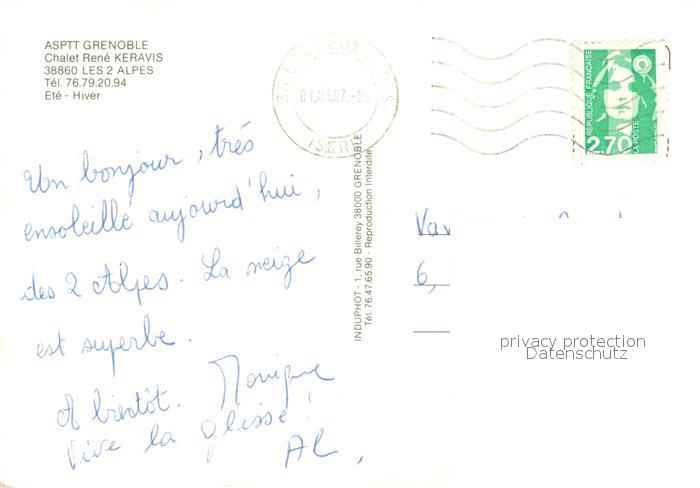 ASPTT GRENOBLE
Chalet René KERAVIS
38860 LES 2 ALPES
Tél. 76.79.20.94
Eté - Hiver
Un bonjour, très
ensoleillé aujourd'hui,
des 2 Alpes. La neige
est superbe.
A bientôt. Monique
Vive la glisse !
AL,
INDUPHOT - 1, rue Billerey 38000 GRENOBLE
Tél. 76.47.65.90 - Reproduction Interdite
38 LES DEUX ALPES
ISERE
RÉPUBLIQUE FRANÇAISE
2,70
LA POSTE
6,
privacy protection
Datenschutz